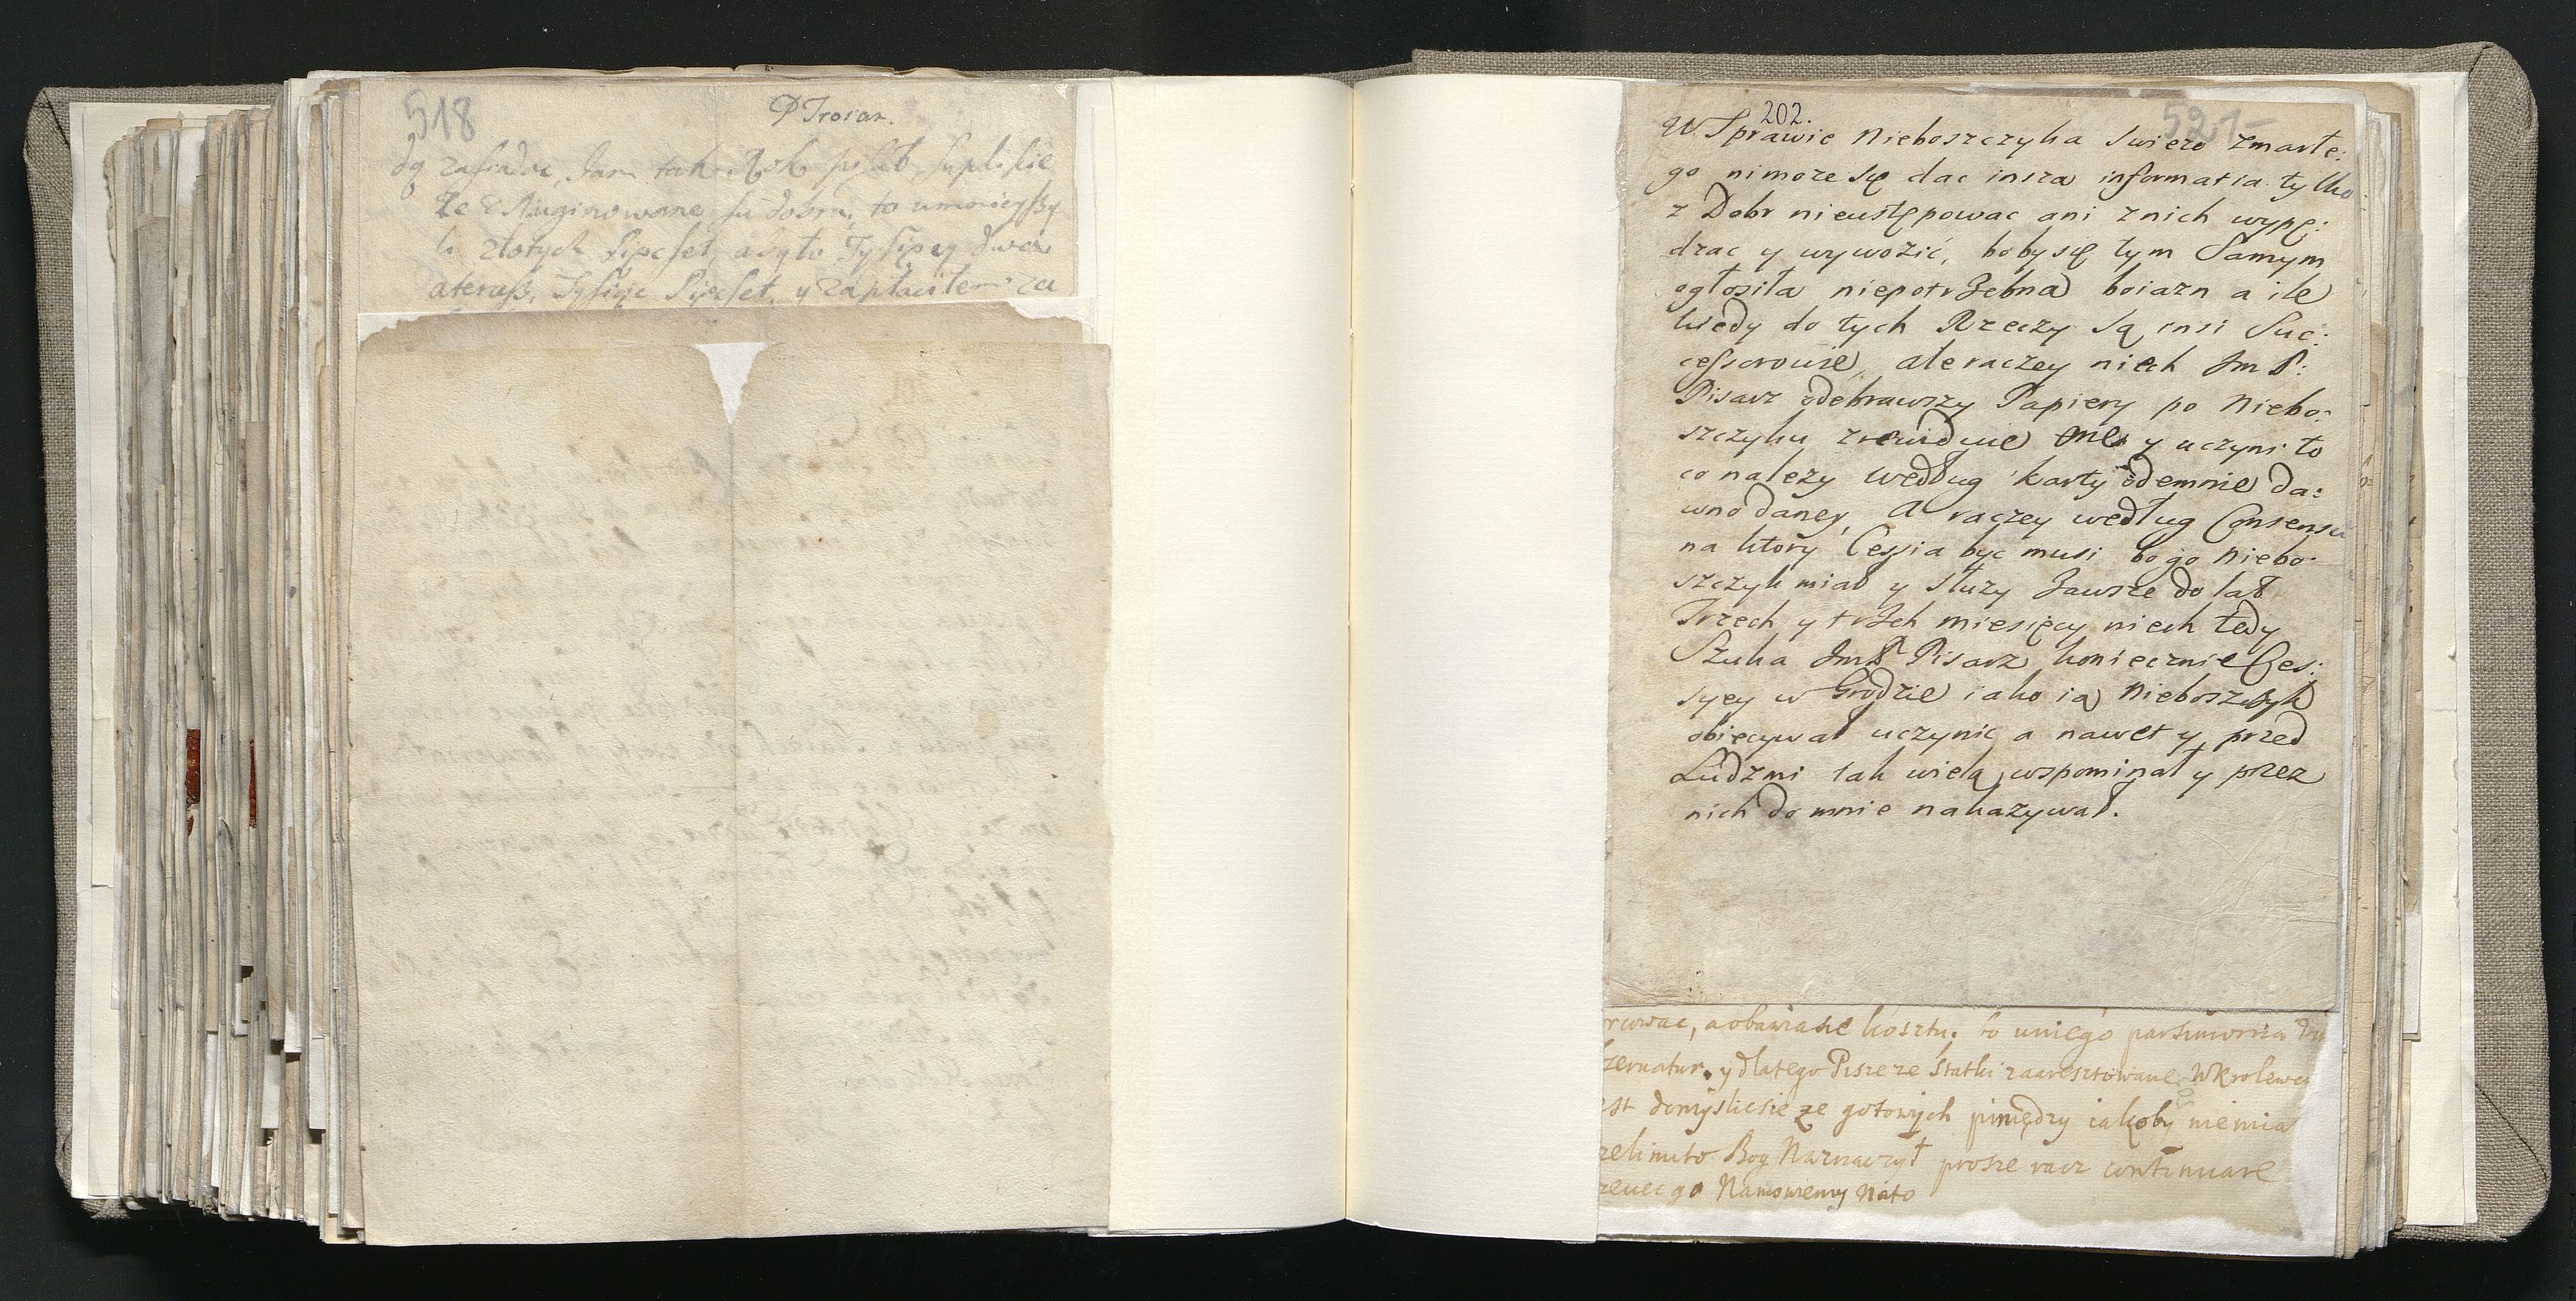 518
P Trocan.
że zRuginowane su dobra, to umnieyszy
li złotych Pięcset, a było Tysięcy dwa
ateraß, Tysiąc Pięcset, y zapłaciłem za
202.
521
W Sprawie Nieboszczyka swiezo zmarłe:
go nimoze się dac insza informatia tylko
z Dobr nieustępowac ani z nich wypę:
dzac y wywozić, boby się tym Samym
ogłosiła niepotrzebna boiazn a ile
kiedy do tych Rzeczy są insi Suc:
cessorowie, ale raczey niech Jm P:
Pisarz odebrawszy Papiery po Niebo:
szczyku zrewiduie one y uczyni to
co nalezy według karty odemnie da:
wno daney, A raczey według Consensu
na ktory Cessia byc musi bo go Niebo:
szczyk miał y słuzy zawsze do lat
Trzech y trzech miesięcy niech tedy
Szuka Jm P Pisarz koniecznie Ces:
syey w Grodzie iako ią Nieboszczyk
obiecywał uczynić a nawet y przed
Ludzmi tak wielą wspominał y przez
nich do mnie nakazywał.
rcowac, a obawiasie kosztu. bo uniego parsimonia
y dlatego Pisze ze Statki zaaresztowane W Krolewcu
est domyslicsie ze gotowych pinędzy iakoby niemiał
zelimuto Bog Naznaczył prosze racz continuare
Namowiemy Nato